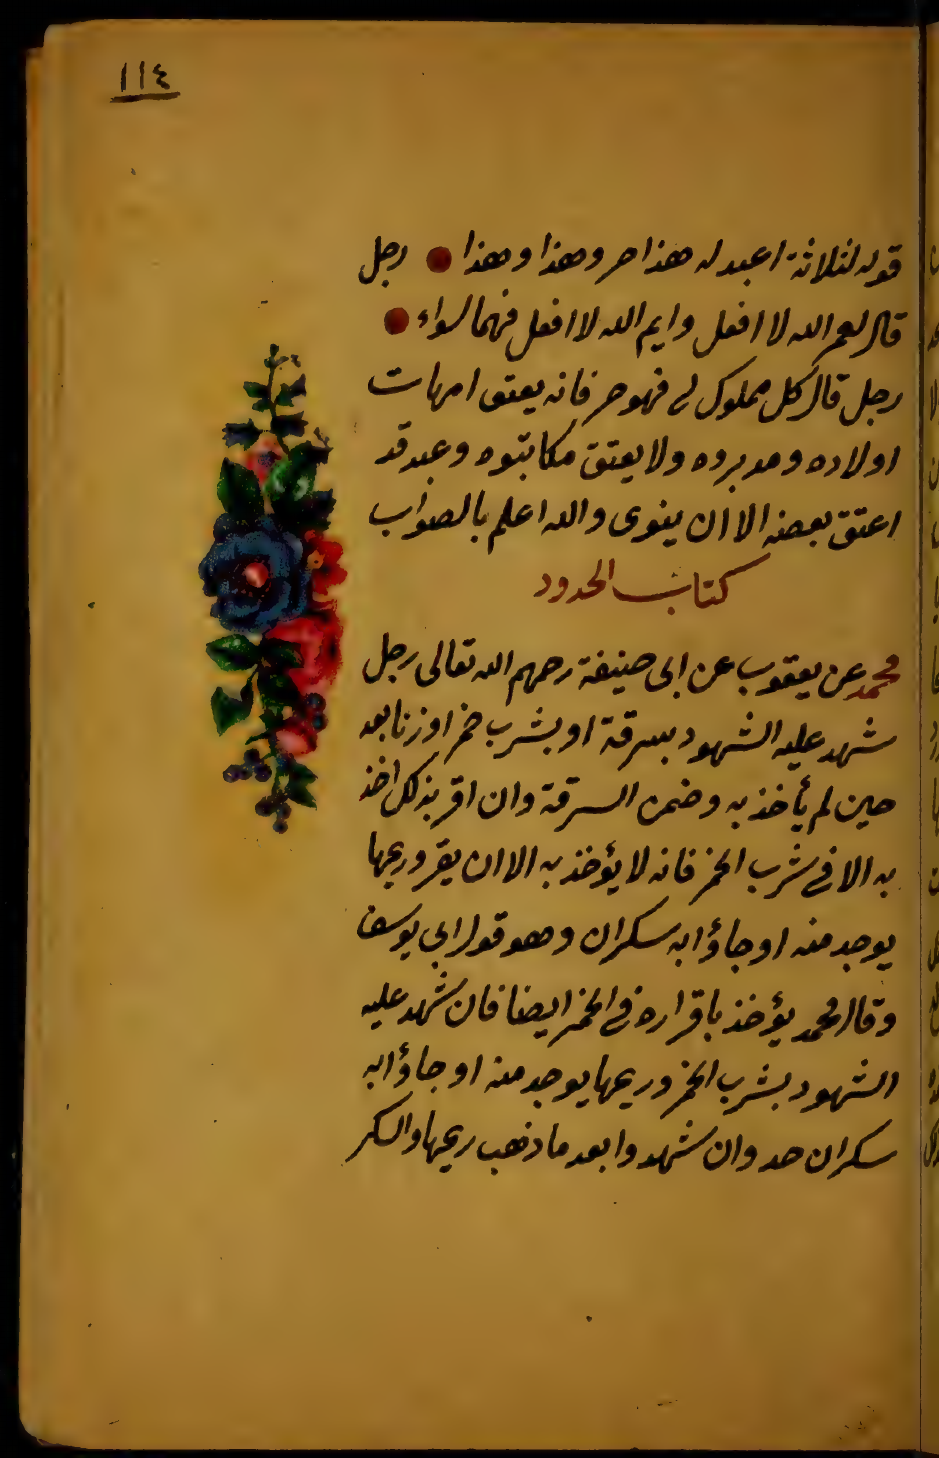 ١١٤
قوله لثلاثة اعبد له هذا حر وهذا وهذا رجل
قال لعمر الله لا افعل وايم الله لا افعل فهما سواء
رجل قال كل مملوك لى فهو حر فانه يعتق امهات
اولاده ومدبروه ولا يعتق مكاتبوه وعبد قد
اعتق بعضه الا ان ينوى والله اعلم بالصواب
كتاب الحدود
محمد عن يعقوب عن ابى حنيفة رحمهم الله تعالى رجل
شهد عليه الشهود بسرقة او بشرب خمر او زنا بعد
حين لم يأخذ به وضمن السرقة وان اقر بذلك اخذ
به الا فى شرب الخمر فانه لا يؤخذ به الا ان يقر وريحها
يوجد منه او جاؤا به سكران وهو قول ابى يوسف
وقال محمد يؤخذ باقراره فى الخمر ايضا فان شهد عليه
الشهود بشرب الخمر وريحها يوجد منه او جاؤا به
سكران حد وان شهدوا بعد ما ذهب ريحها والسكر